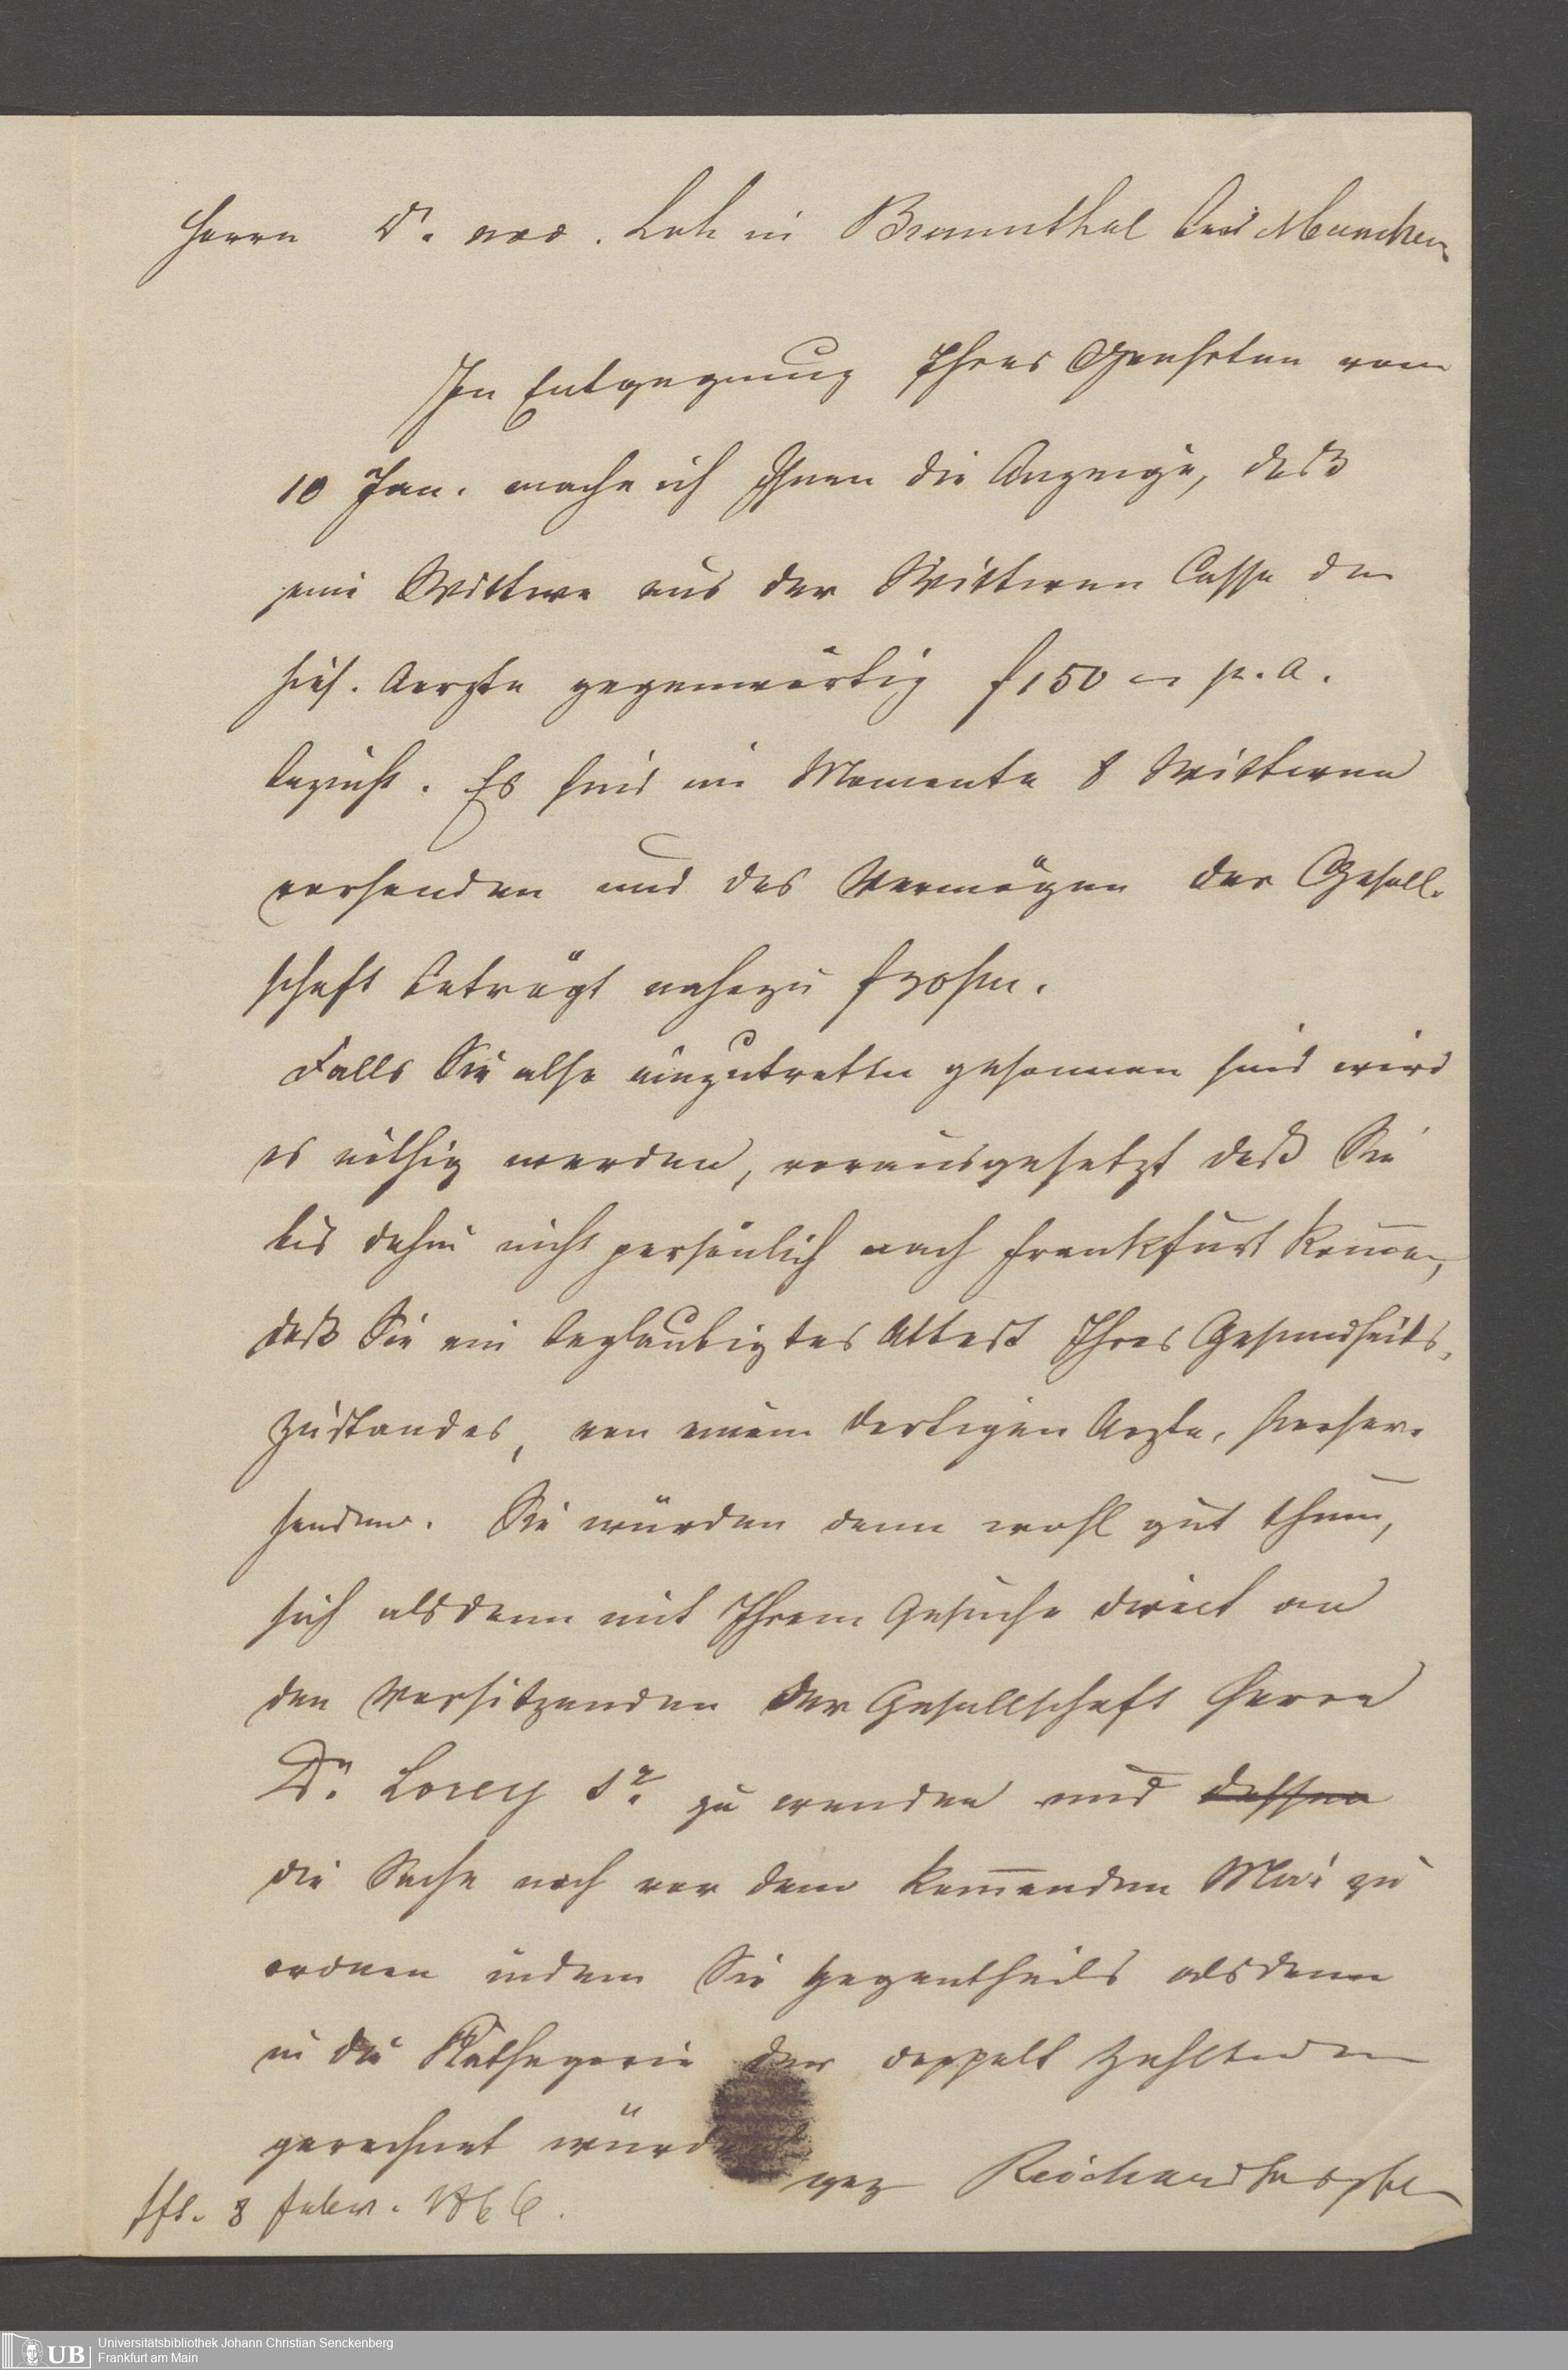 Herrn Dr. med. Loh in Brunnthal bei München
In Entgegnung Ihres Geehrten vom
10 Jan. mache ich Ihnen die Anzeige, daß
eine Wittwe aus der Wittwen Casse der
hies. Aerzte gegenwärtig f 150 p. a.
bezieht. Es sind im Momente 8 Wittwen
vorhanden und das Vermögen der Gesell-
schaft beträgt nahezu
Falls Sie also einzutretten gesonnen sind wird
es nöthig werden, vorausgesetzt daß Sie
bis dahin nicht persönlich nach Frankfurt kommen,
daß Sie ein beglaubigtes Attest Ihres Gesundheits-
zustandes, von einem dortigen Arzte, hierher
senden. Sie würden dann wohl gut thun,
sich alsdann mit Ihrem Gesuche direct an
den Vorsitzenden der Gesellschaft Herrn
Dr. Lorey Sr. zu wenden und dessen
die Sache noch vor dem kommenden Mai zu
ordnen indem Sie gegentheils alsdann
in die Kathegorie der doppelt zahlenden
gerechnet würden
gez
Fft. 8 Febr. 1866.
Universitätsbibliothek Johann Christian Senckenberg
UB Frankfurt am Main